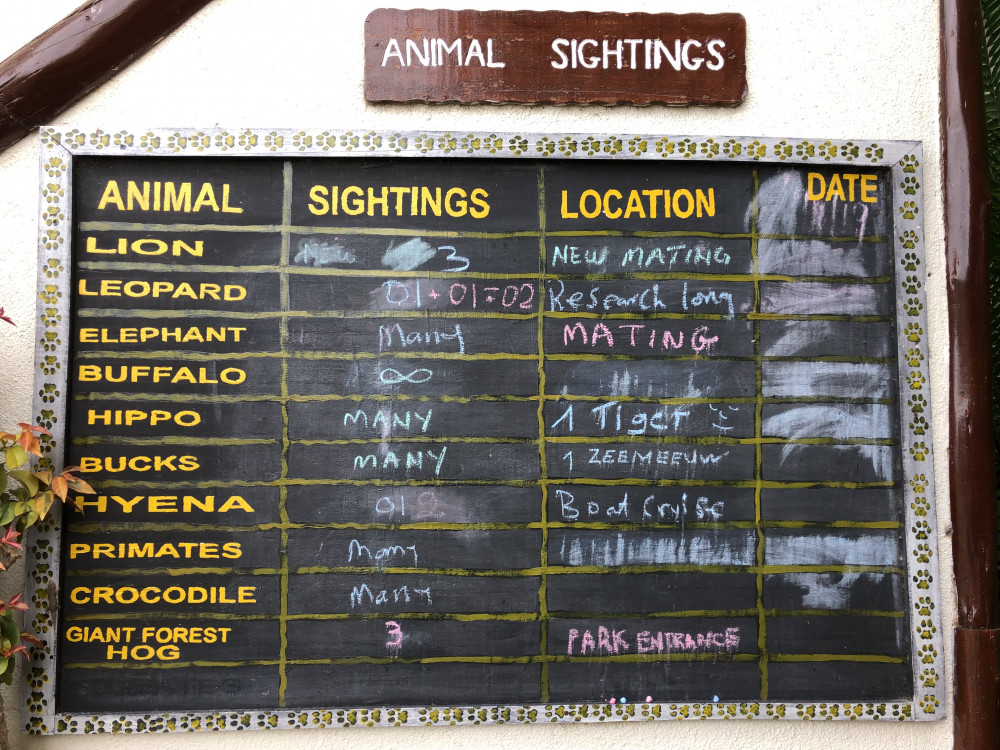 ANIMAL SIGHTINGS
ANIMAL SIGHTINGS LOCATION DATE
LION 3 NEW MATING
LEOPARD 01 + 01 = 02 Research long
ELEPHANT Many MATING
BUFFALO ∞
HIPPO MANY 1 Tiger
BUCKS MANY 1 ZEEMEEUW
HYENA 01 2 Boat Cruise
PRIMATES Many
CROCODILE Many
GIANT FOREST HOG 3 PARK ENTRANCE